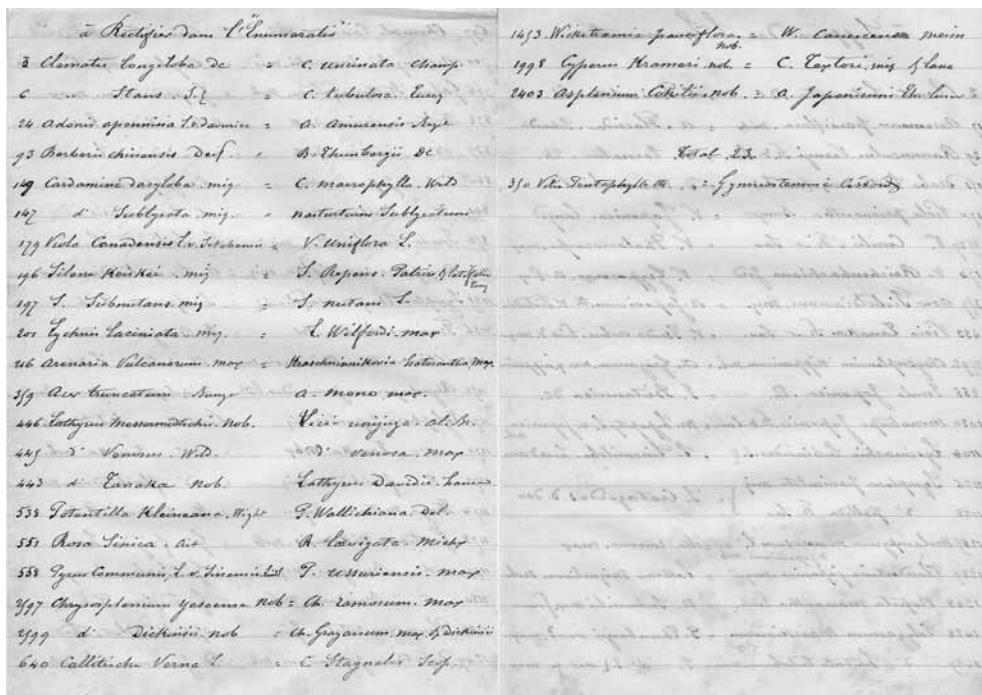 à Rectifier dans l'"Enumeratio"
3 Clematis longiloba dc = C. uncinata champ.
6 " Stans. S.Z = C. tubulosa. Turcz
24 Adonis apennina L. v. davurica = A. amurensis Regel
93 Berberis chinensis Desf. " B. Thunbergii DC
149 Cardamine dasyloba miq = C. macrophylla. Willd
147 d° Sublyrata miq. " nasturtium Sublyratum
179 Viola Canadensis L. v. = V. uniflora L.
196 Silene Keiskei. miq = S. Repens. Patrin.
197 S. Subnutans. miq = S. nutans L.
201 Lychnis laciniata miq. = L. Wilfordi. max
216 Arenaria Vulcanorum. max = Kraschninnikovia heterantha, Max.
359 Acer truncatum Bunge = A. mono max.
446 Lathyrus Messerschmidtii. Nob. Vicia unijuga. al. Br.
445 d° Venosus. Willd. d° venosa. max
443 d° Tanakæ Nob. Lathyrus Davidii. hance
538 Potentilla Kleineana. Wight P. Wallichiana Del.
551 Rosa Sinica. Ait R. lævigata. Michx
558 Pyrus Communis, L. v. Sinensis = P. ussuriensis. max
2597 Chrysosplenium yesoense nob = Ch. ramosum. max
2599 d° Dickinsii. nob = Ch. Grayanum, max. β Dickinsii
640 Callitriche Verna L = C Stagnalis Scop.
1453 Wickstrœmia pauciflora. nob. = W. Canescens meisn
1998 Cyperus Krameri. nob. = C. Textori, miq β laxa
2403 Asplenium nob. = A. Japonicum
total 23.
350 Vitis Pentaphylla th. = Gynostemma Cissoides